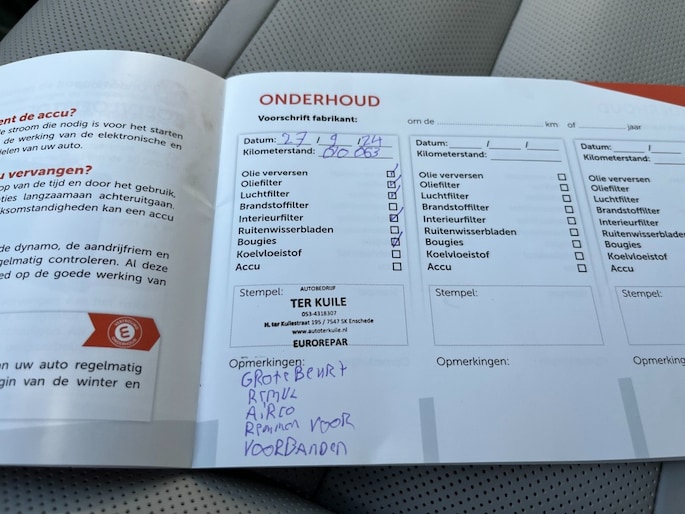 ent de accu?
e stroom die nodig is voor het starten
de werking van de elektronische en
elen van uw auto.
u vervangen?
op van de tijd en door het gebruik,
ties langzaamaan achteruitgaan.
ksomstandigheden kan een accu
de dynamo, de aandrijfriem en
gelmatig controleren. Al deze
ed op de goede werking van
an uw auto regelmatig
gin van de winter en
ONDERHOUD
Voorschrift fabrikant: om de km of jaar
Datum: 27 / 9 / 24
Kilometerstand:
Olie verversen
Oliefilter
Luchtfilter
Brandstoffilter
Interieurfilter
Ruitenwisserbladen
Bougies
Koelvloeistof
Accu
Stempel:
AUTOBEDRIJF
TER KUILE
053-4318307
H. ter Kuilestraat 195 / 7547 SK Enschede
www.autoterkuile.nl
EUROREPAR
Opmerkingen:
GROTE BEURT
AIRCO
Remmen VOOR
VOORBANDEN
Datum: / /
Kilometerstand:
Olie verversen
Oliefilter
Luchtfilter
Brandstoffilter
Interieurfilter
Ruitenwisserbladen
Bougies
Koelvloeistof
Accu
Stempel:
Opmerkingen:
Datum: /
Kilometerstand:
Olie verversen
Oliefilter
Luchtfilter
Brandstoffilter
Interieurfilter
Ruitenwisserbladen
Bougies
Koelvloeistof
Accu
Stempel:
Opmerking